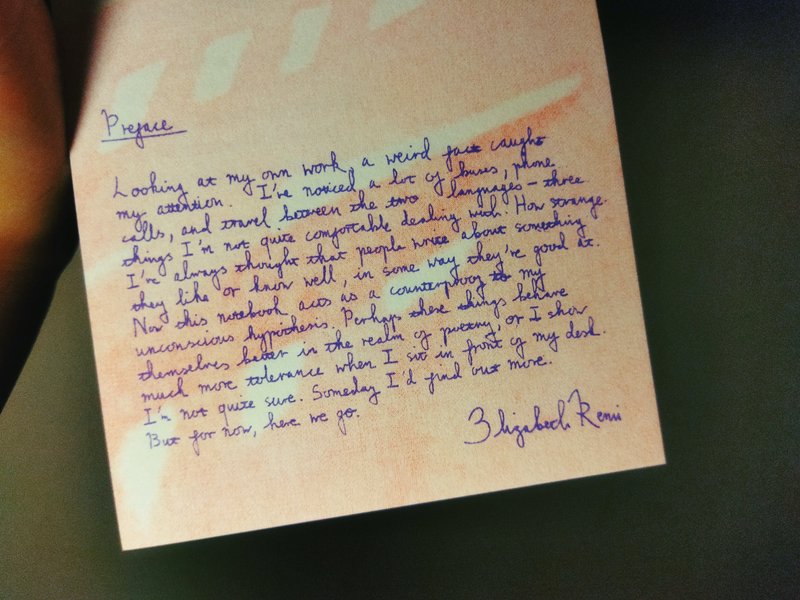 Preface
Looking at my own work, a weird fact caught
my attention. I've noticed a lot of buses, phone
calls, and travel between the two languages – three
things I'm not quite comfortable dealing with. How strange.
I've always thought that people write about something
they like or know well, in some way they're good at.
Now this notebook acts as a counterproof to my
unconscious hypothesis. Perhaps these things behave
themselves better in the realm of poetry, or I show
much more tolerance when I sit in front of my desk.
I'm not quite sure. Someday I'd find out more.
But for now, here we go.
Elizabeth Remi